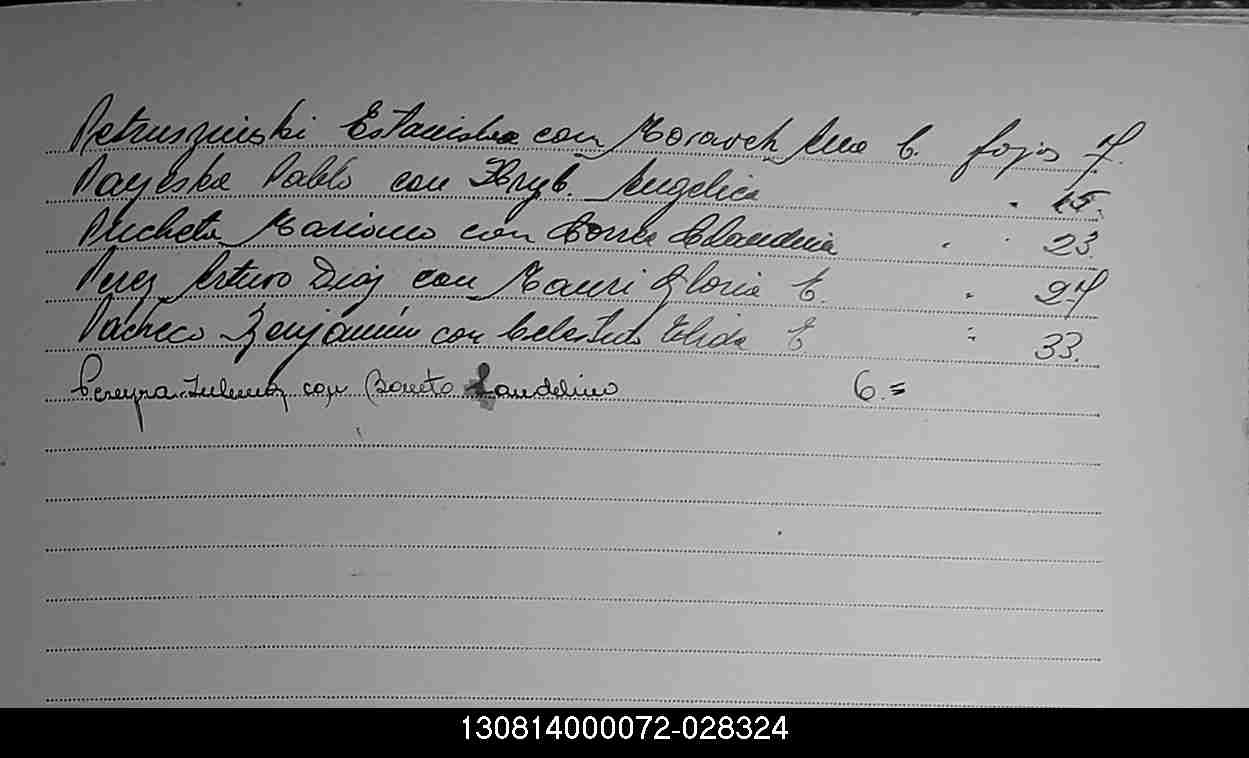 Petruszinski Estanislao con Moravek Ana C. fojas 7.
Payeska Pablo con Hryb. Angelica " 15.
Pucheta Mariano con Correa Claudina " " 23.
Perez Arturo Diaz con Mauri Gloria E. " 27
Pacheco Benjamin con Celestino Elida E " 33.
Pereyra con Boneto Laudelino 6.=
130814000072-028324